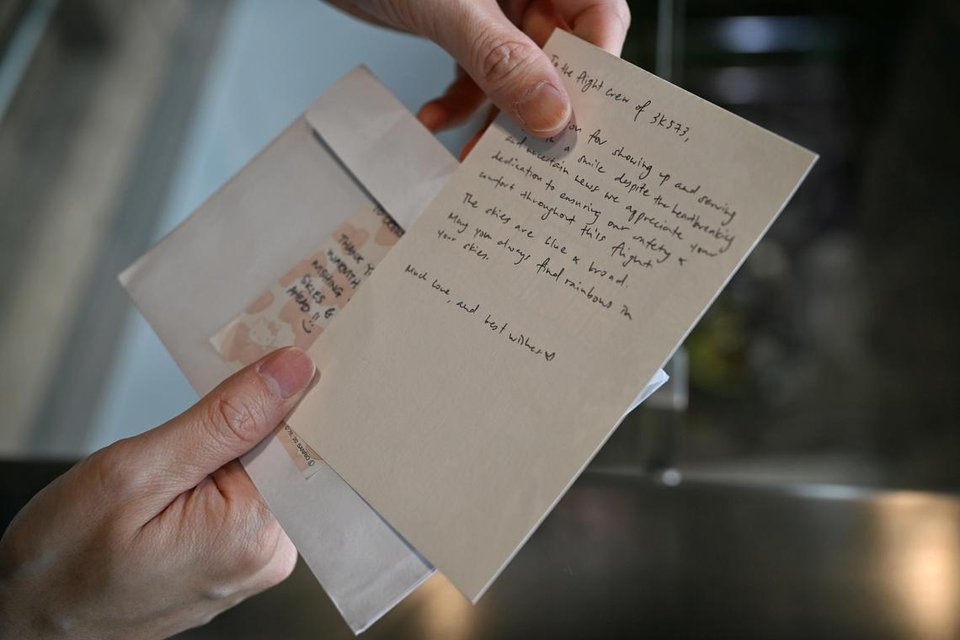 To the flight crew of 3K573,
for showing up and serving
a smile despite the heartbreaking
and uncertain news. We appreciate your
dedication to ensuring our safety &
comfort throughout this flight.
The skies are blue & broad.
May you always find rainbows in
your skies.
Much love, and best wishes
THANK
WARMTH
WISHING
SKIES
AHEAD!!